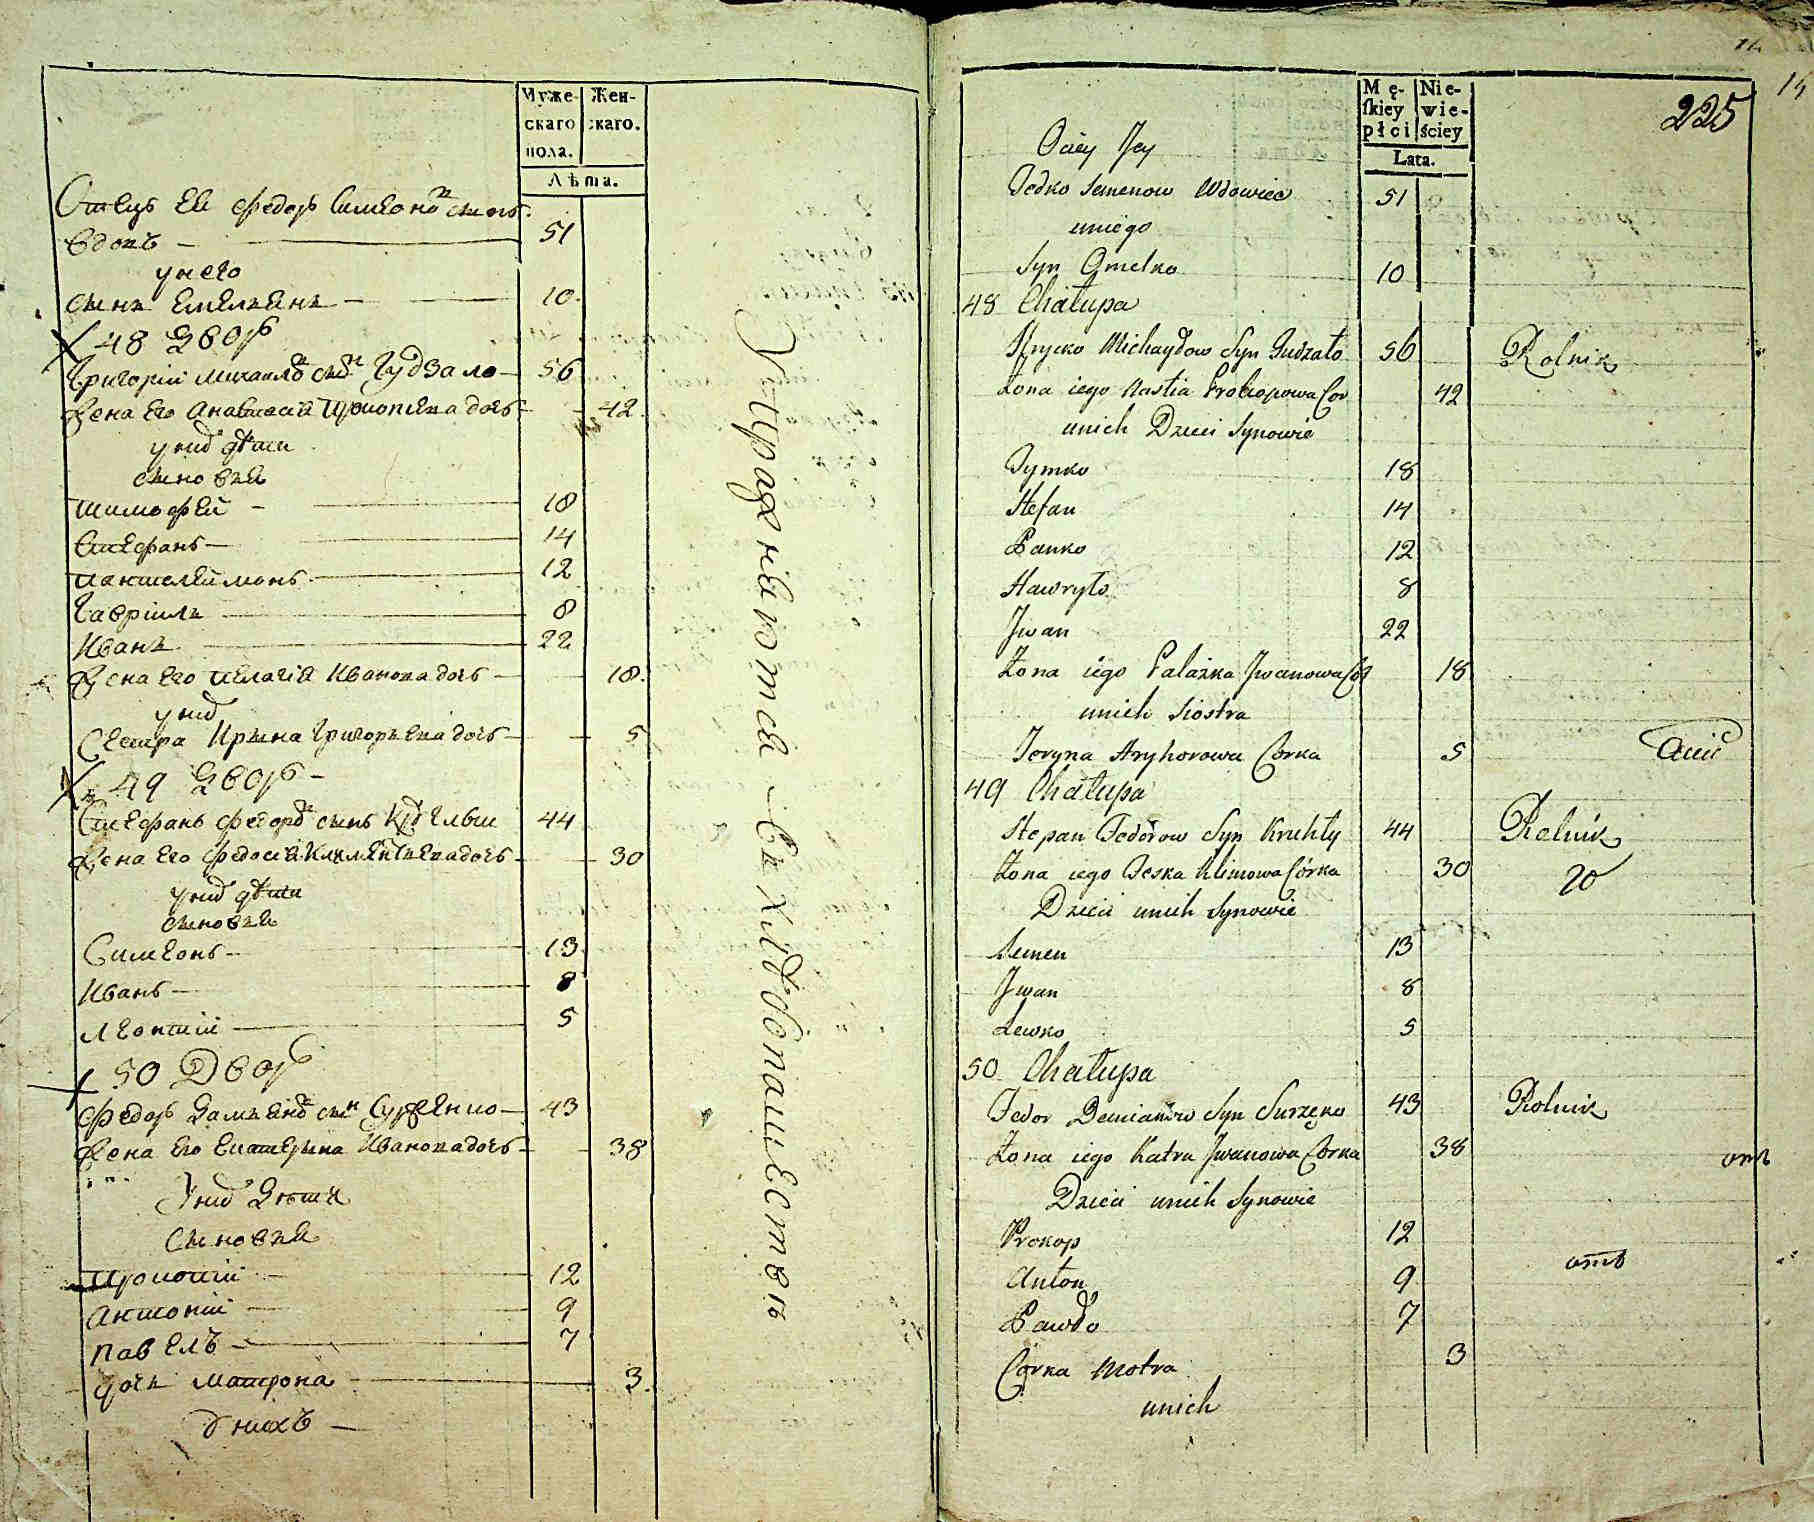 Муже-
скаго
пола.
Жен-
скаго.
Лѣта.
Отецъ Ей Федоръ Симеоно въ сынъ
Вдовъ 51
у него
сынъ Емельянъ 10
48 Дворъ
Григорій Михайловъ сынъ Гудзало 56
Жена Его Анастасія Прокопьева дочь 42
у них дѣти
сыновья
Тимофей 18
Стефанъ 14
Пантелеймонъ 12
Гавріилъ 8
Иванъ 22
Жена Его Пелагія Иванова дочь 18
у них
Сестра Ирына Григорьева дочь 5
49 Дворъ
Стефанъ Федоровъ сынъ 44
Жена Его Федосія Климентьева дочь 30
у них дѣти
сыновья
Симеонъ 13
Иванъ 8
Леонтій 5
50 Дворъ
Федоръ сын 43
Жена Его Екатерина Иванова дочь 38
У них Дѣти
Сыновья
Прокопій 12
Антоній 9
Павелъ 7
дочь Матрона 3
У нихъ
Упражняются въ хлѣбопашествѣ
Mę-
ſkiey
płci
Nie-
wie-
ściey
Lata.
225
14
Ociey Jey
Fedko Semenow Wdowiec 51
uniego
Syn Omelko 10
48 Chałupa
Hrycko Michayłow Syn Gudzało 56 Rolnik
Żona iego Nastia Prokopowa Cor 42
unich Dzieci Synowie
Tymko 18
Stefan 14
Panko 12
Hawryło 8
Jwan 22
Żona iego Palażka Jwanowa Cor 18
unich Siostra
Jeryna Hryhorowa Corka 5
49 Chałupa
Stepan Fedorow Syn Kruhły 44 Rolnik
Żona iego Feska Klimowa Córka 30 20
Dzieci unich Synowie
Semen 13
Jwan 8
Lewko 5
50 Chałupa
Fedor Demianow Syn Surżęko 43 Rolnik
Żona iego Katra Jwanowa Corka 38
Dzieci unich Synowie
Prokop 12
Anton 9
Pawło 7
Corka Motra 3
unich